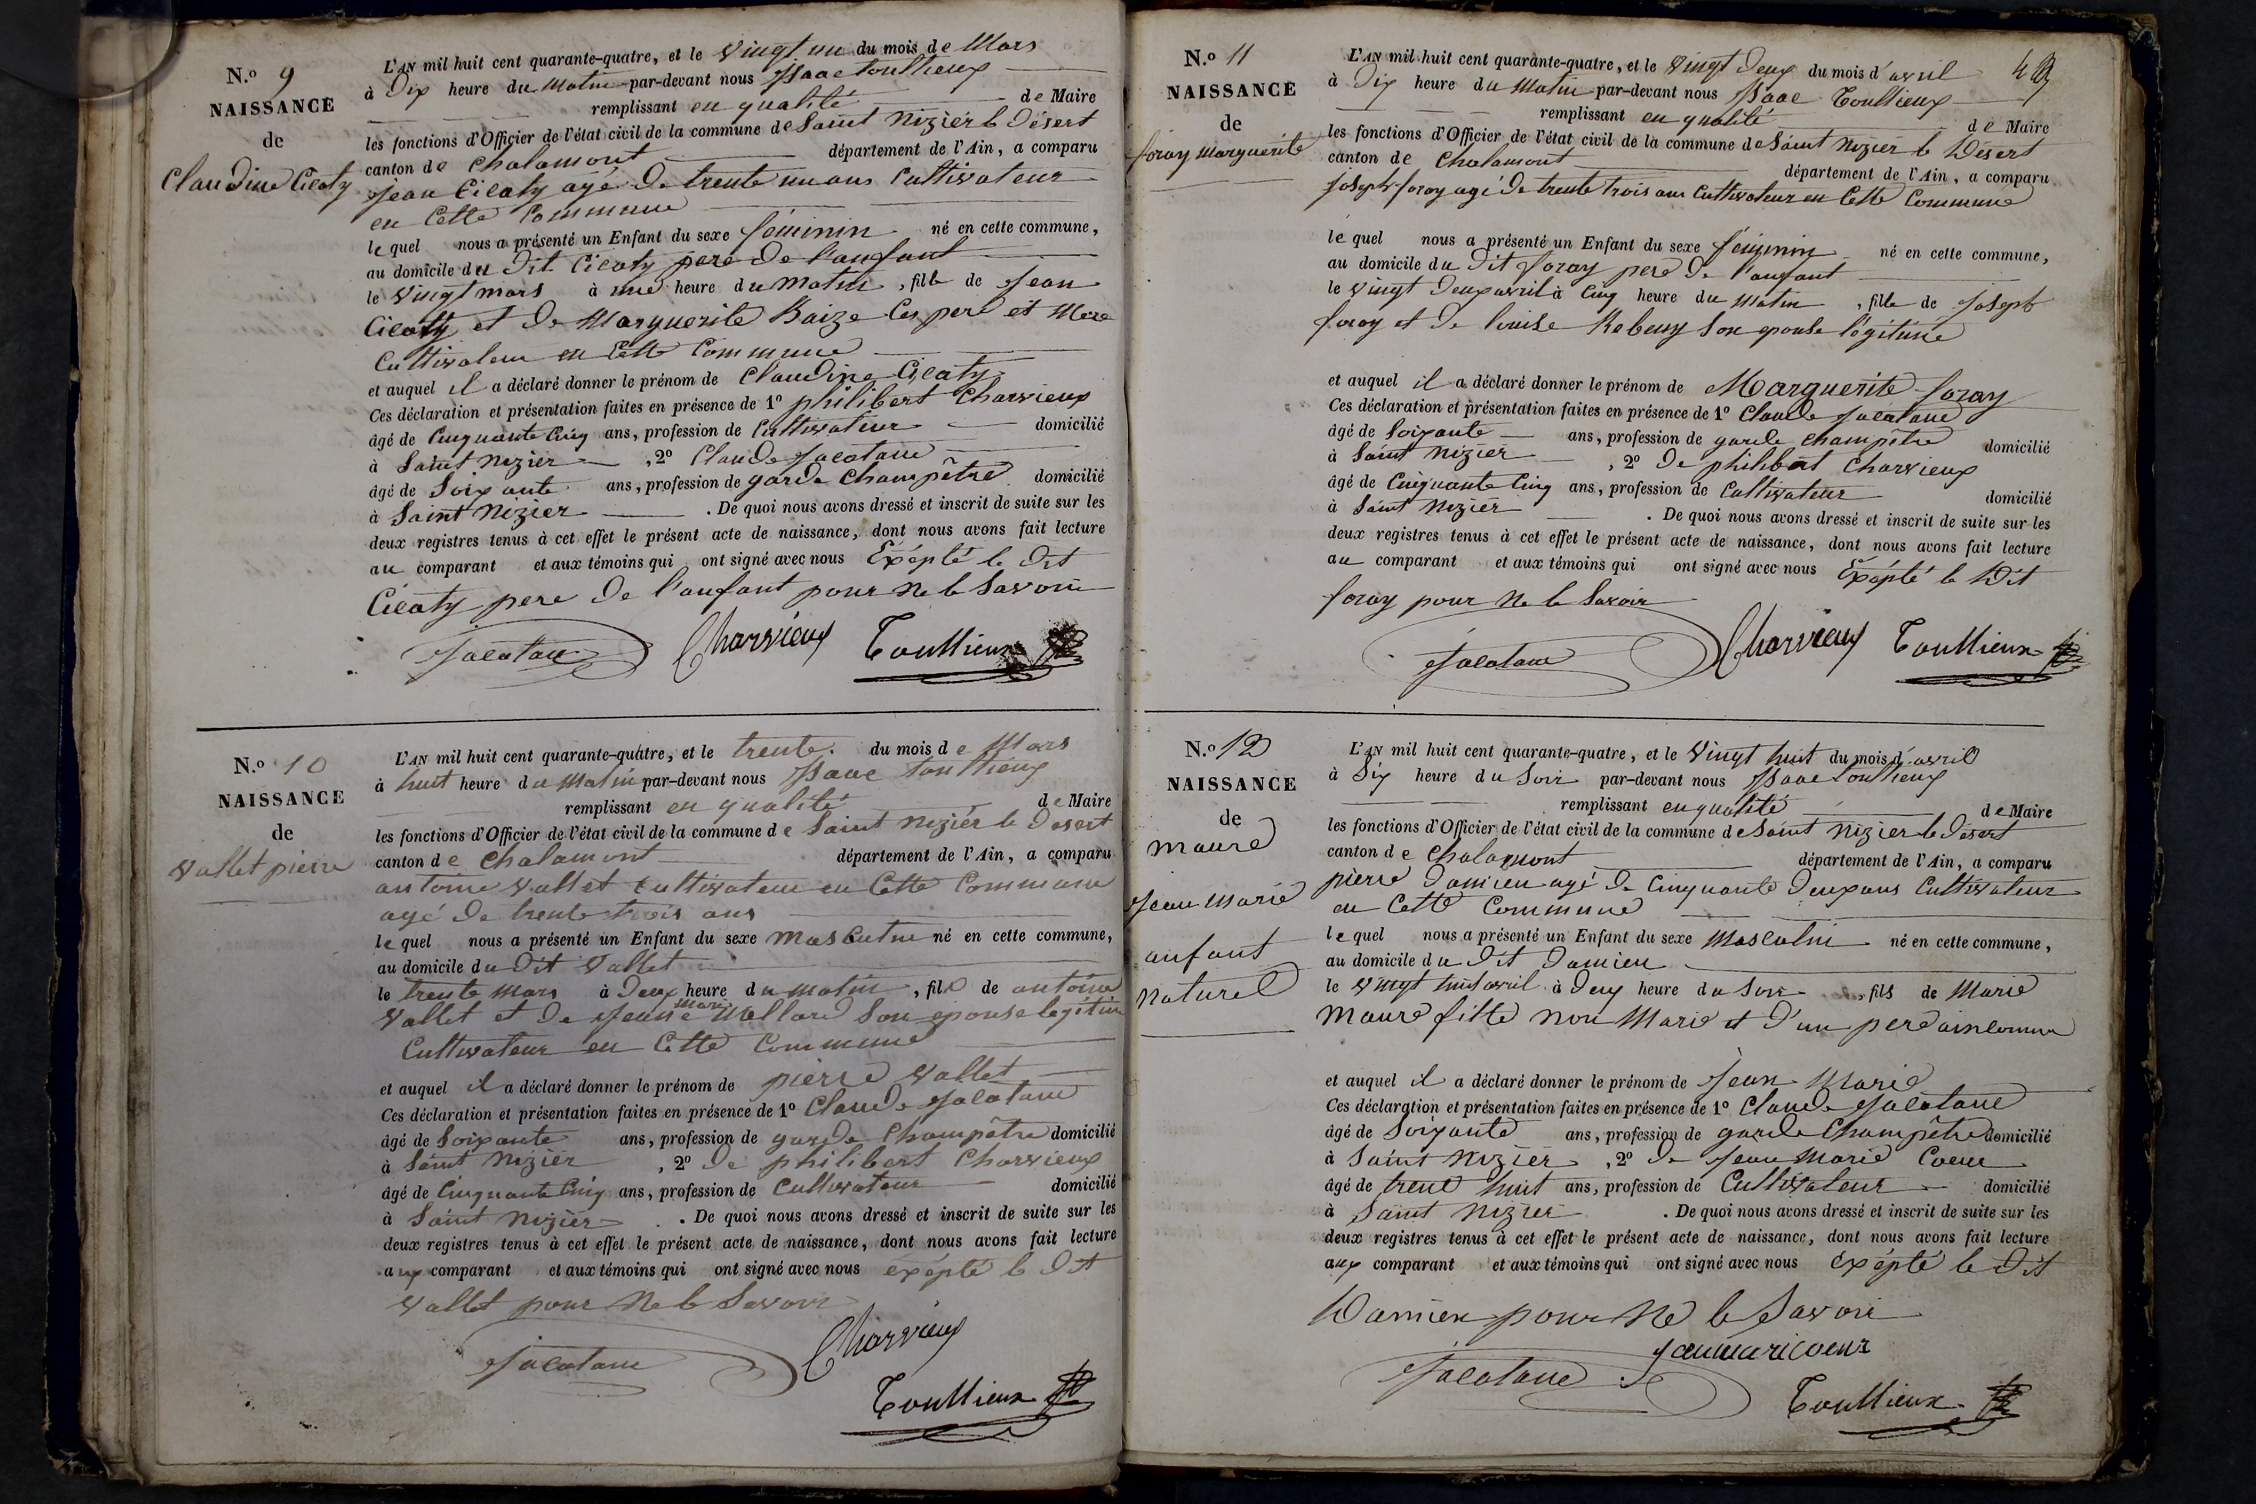 N.º 9
NAISSANCE
de
Claudine Cicaty
L'AN mil huit cent quarante-quatre, et le vingt un du mois de Mars
à Dix heure du Matin par-devant nous Isaac Toullieux
remplissant en qualité de Maire
les fonctions d'Officier de l'état civil de la commune de Saint Nizier le Désert
canton de Chalamont département de l'Ain, a comparu
Jean Cicaty agé De trente un ans Cultivateur
en Cette Commune
le quel nous a présenté un Enfant du sexe féminin né en cette commune,
au domicile du Dit Cicaty pere De l'anfant
le vingt mars à une heure du matin, fille de Jean
Cicaty et De Marguerite Baize Ces pere et Mere
Cultivateur en Cette Commune
et auquel il a déclaré donner le prénom de Claudine Cicaty
Ces déclaration et présentation faites en présence de 1º philibert Charvieux
âgé de Cinquante Cinq ans, profession de Cultivateur domicilié
à Saint Nizier, 2º Claude Jacatane
âgé de Soixante ans, profession de garde Champêtre domicilié
à Saint Nizier. De quoi nous avons dressé et inscrit de suite sur les
deux registres tenus à cet effet le présent acte de naissance, dont nous avons fait lecture
au comparant et aux témoins qui ont signé avec nous Exépté le Dit
Cicaty pere De l'anfant pour Ne le Savoir
Jacatane Charvieux Toullieux
N.º 10
NAISSANCE
de
Vallet pierre
L'AN mil huit cent quarante-quatre, et le trente du mois de Mars
à huit heure du Matin par-devant nous Isaac Toullieux
remplissant en qualité de Maire
les fonctions d'Officier de l'état civil de la commune de Saint Nizier le Désert
canton de Chalamont département de l'Ain, a comparu
antoine Vallet Cultivateur en Cette Commune
agé De trente trois ans
le quel nous a présenté un Enfant du sexe masculin né en cette commune,
au domicile du Dit Vallet
le trente Mars à Deux heure du matin, fils de antoine
Vallet et De Jeanne marie Son epouse légitime
Cultivateur en Cette Commune
et auquel il a déclaré donner le prénom de pierre Vallet
Ces déclaration et présentation faites en présence de 1º Claude Jacatane
âgé de Soixante ans, profession de garde Champêtre domicilié
à Saint Nizier, 2º De philibert Charvieux
âgé de Cinquante Cinq ans, profession de Cultivateur domicilié
à Saint Nizier. De quoi nous avons dressé et inscrit de suite sur les
deux registres tenus à cet effet le présent acte de naissance, dont nous avons fait lecture
aux comparant et aux témoins qui ont signé avec nous exépté le Dit
Vallet pour Ne le Savoir
Jacatane Charvieux
Toullieux
N.º 11
NAISSANCE
de
foray Marguerite
L'AN mil huit cent quarante-quatre, et le vingt Deux du mois d'avril
à Dix heure du Matin par-devant nous Isaac Toullieux
remplissant en qualité de Maire
les fonctions d'Officier de l'état civil de la commune de Saint Nizier le Désert
canton de Chalamont département de l'Ain, a comparu
Joseph foray agé De trente trois ans Cultivateur en Cette Commune
le quel nous a présenté un Enfant du sexe féminin né en cette commune,
au domicile du Dit foray pere De l'anfant
le vingt Deux avril à Cinq heure du Matin, fille de Joseph
foray et De louise Son epouse légitime
et auquel il a déclaré donner le prénom de Marguerite foray
Ces déclaration et présentation faites en présence de 1º Claude Jacatane
âgé de Soixante ans, profession de garde Champêtre domicilié
à Saint Nizier, 2º De philibert Charvieux
âgé de Cinquante Cinq ans, profession de Cultivateur domicilié
à Saint Nizier. De quoi nous avons dressé et inscrit de suite sur les
deux registres tenus à cet effet le présent acte de naissance, dont nous avons fait lecture
au comparant et aux témoins qui ont signé avec nous Exépté le Dit
foray pour Ne le Savoir
Jacatane Charvieux Toullieux
N.º 12
NAISSANCE
de
Maure
Jean Marie
anfant
Naturel
L'AN mil huit cent quarante-quatre, et le vingt huit du mois d'avril
à Six heure du Soir par-devant nous Isaac Toullieux
remplissant en qualité de Maire
les fonctions d'Officier de l'état civil de la commune de Saint Nizier le Désert
canton de Chalamont département de l'Ain, a comparu
pierre Damien agé De Cinquante Deux ans Cultivateur
en Cette Commune
le quel nous a présenté un Enfant du sexe Masculin né en cette commune,
au domicile du Dit Damien
le vingt huit avril à Deux heure du Soir, fils de Marie
Maure fille non Marié et D'un pere
et auquel il a déclaré donner le prénom de Jean Marie
Ces déclaration et présentation faites en présence de 1º Claude Jacatane
âgé de Soixante ans, profession de garde Champêtre domicilié
à Saint Nizier, 2º De Jean Marie Coeur
âgé de trent huit ans, profession de Cultivateur domicilié
à Saint Nizier. De quoi nous avons dressé et inscrit de suite sur les
deux registres tenus à cet effet le présent acte de naissance, dont nous avons fait lecture
aux comparant et aux témoins qui ont signé avec nous Exépté le Dit
Damien pour Ne le Savoir
Jacatane Janmaricoeur
Toullieux